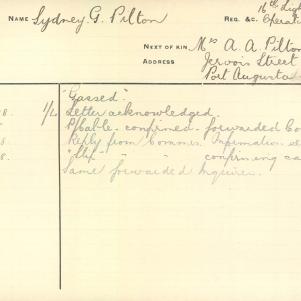 NAME Sydney G. Pilton
16th Lig
REG. &C. Operati
NEXT OF KIN Mrs A. A. Pilton
ADDRESS Jervois Street
Port Augusta
"Gassed".
8. Letter acknowledged.
P/Cable confirmed. forwarded Co
8. Reply from Commrs. Information
8. "Slip" " " confirming ca
Same forwarded Inquirer.